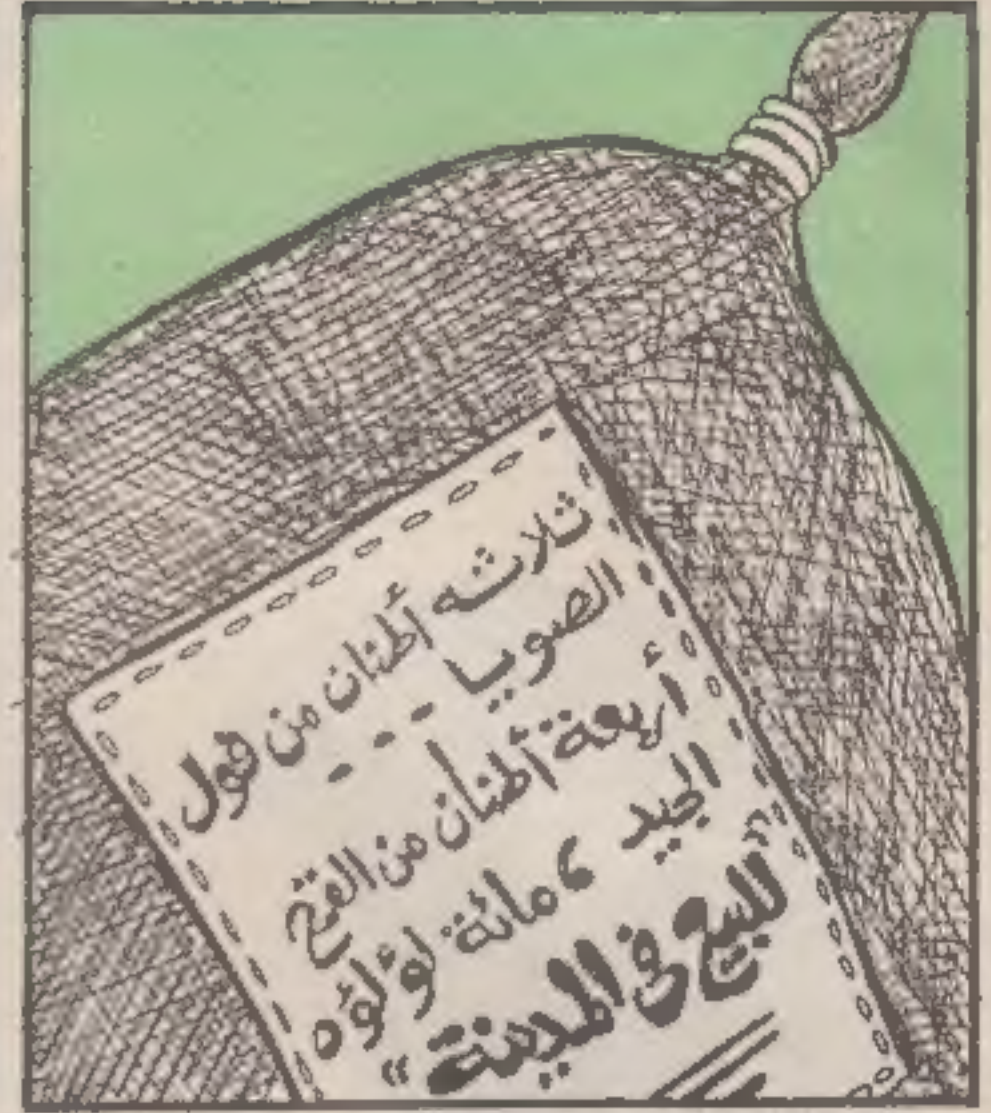 ثلاثه أطنان من فول
الصويا - - -
أربعة أطنان من القمح
الجيد ، مائة لؤلؤه
"للبيع فى المدينة"